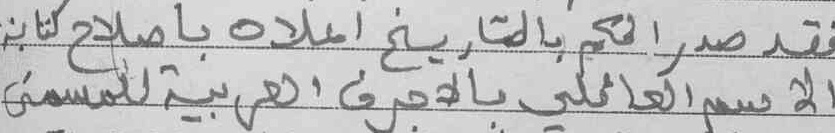 فقد صدر الحكم بالتاريخ اعلاه باصلاح كتابة
الاسم العائلي بالاحرف العربية للمسمى